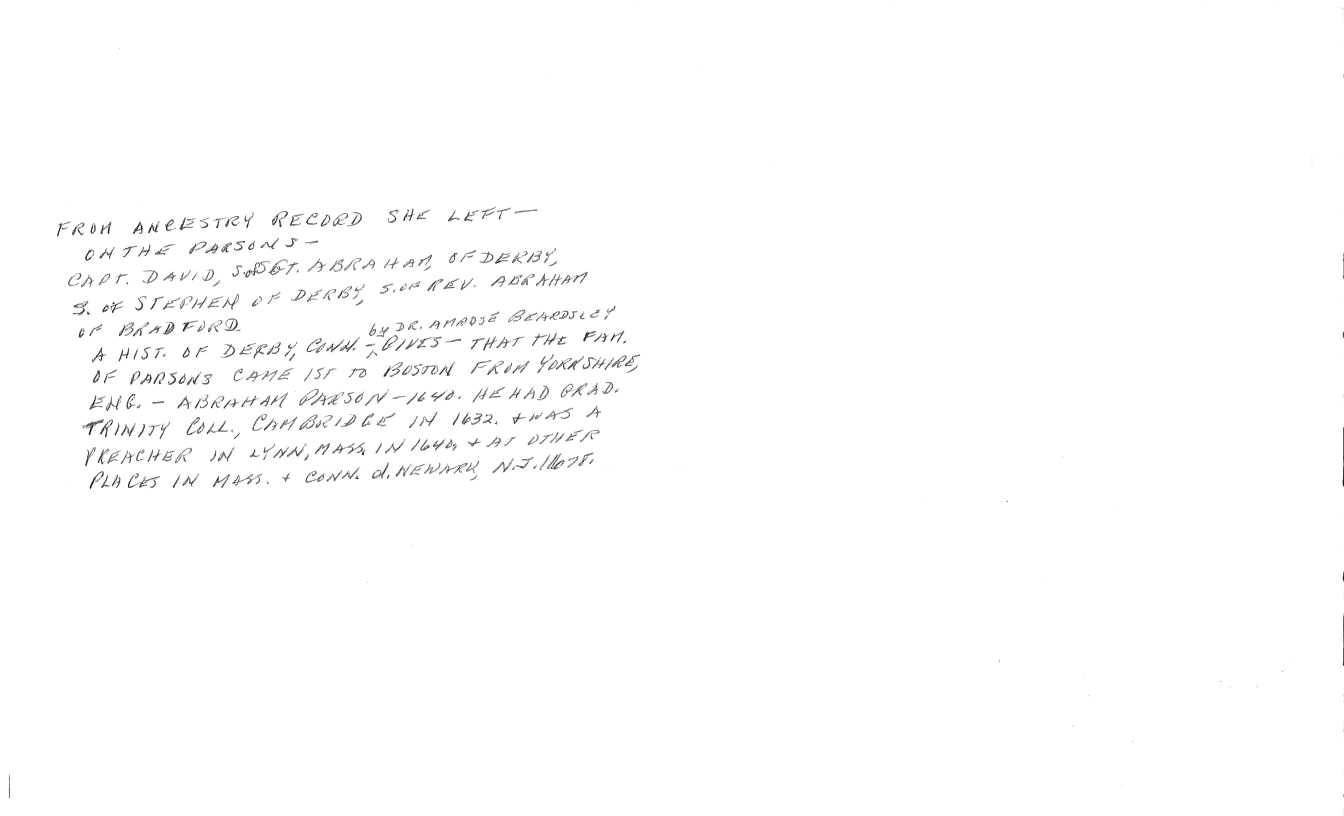 FROM ANCESTRY RECORD SHE LEFT —
ON THE PARSONS —
CAPT. DAVID, S. of SGT. ABRAHAM, OF DERBY,
S. OF STEPHEN OF DERBY, S. OF REV. ABRAHAM
OF BRADFORD.
by DR. AMROSE BEARDSLEY
A HIST. OF DERBY, CONN. – ^ GIVES — THAT THE FAM.
OF PARSONS CAME 1ST TO BOSTON FROM YORKSHIRE,
ENG. — ABRAHAM PARSON – 1640. HE HAD GRAD.
TRINITY COLL., CAMBRIDGE IN 1632. + WAS A
PREACHER IN LYNN, MASS. IN 1640, + AT OTHER
PLACES IN MASS. + CONN. d. NEWARK, N.J. 1678.